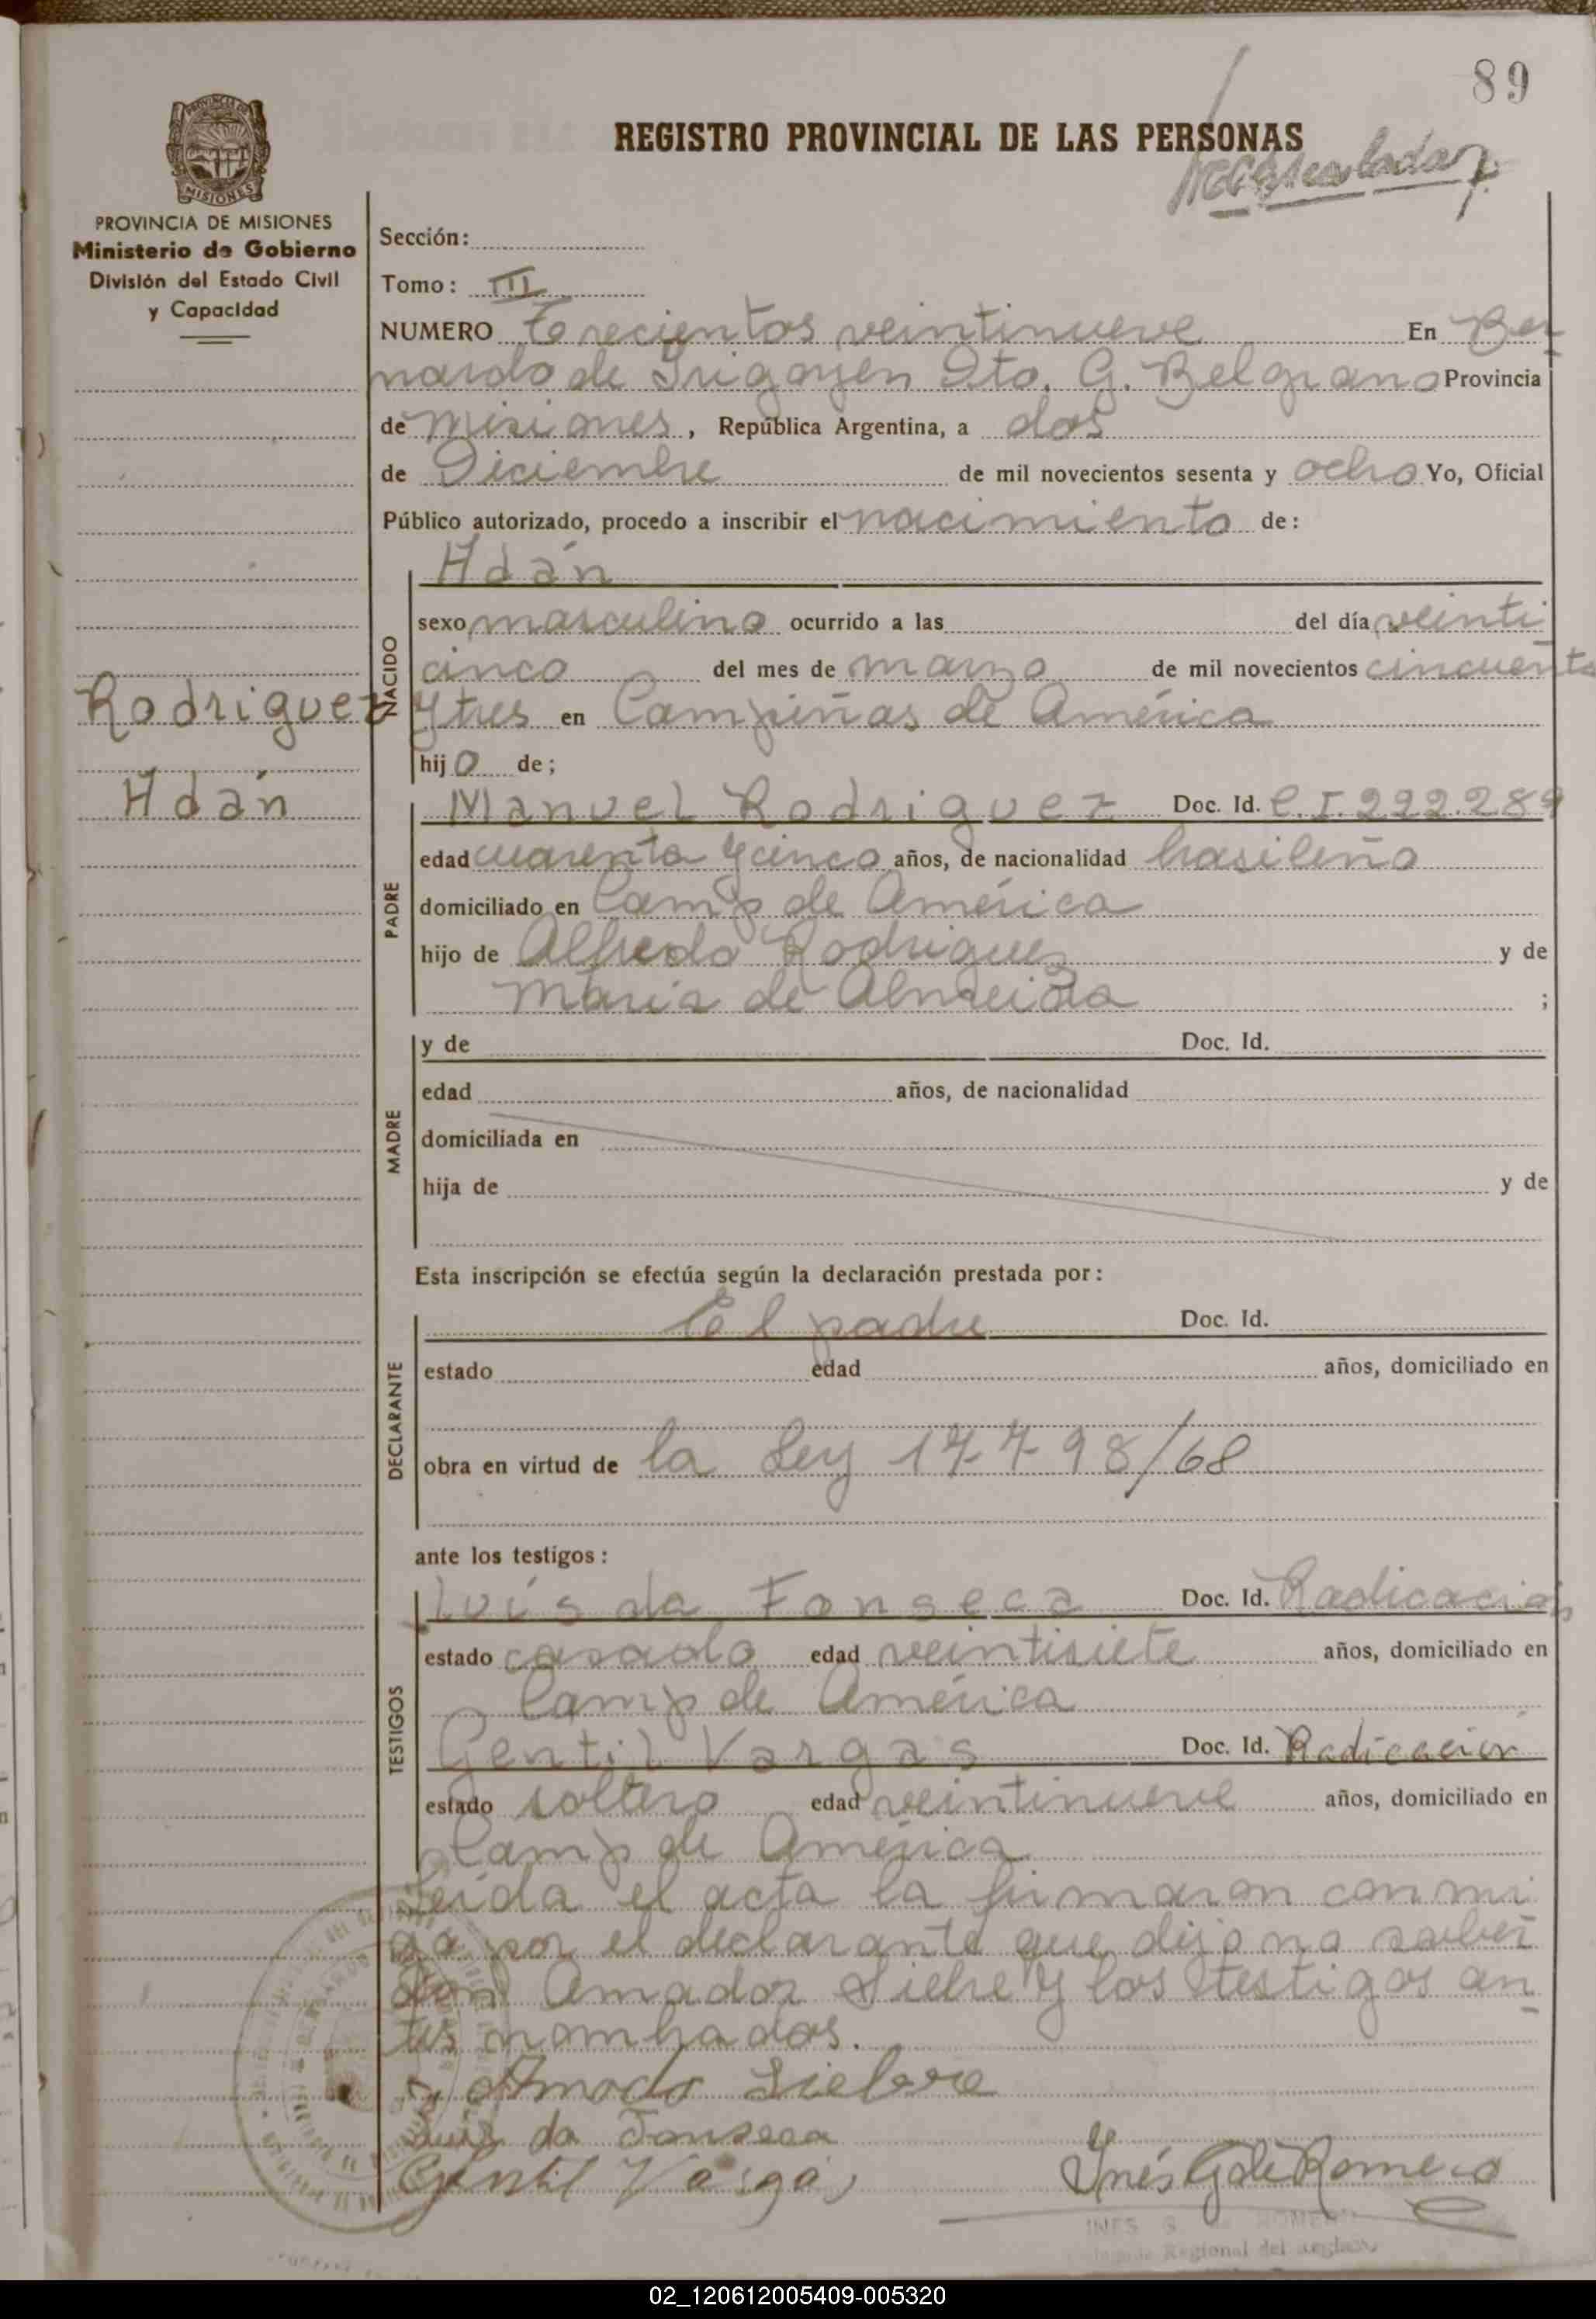 89
REGISTRO PROVINCIAL DE LAS PERSONAS
PROVINCIA DE MISIONES
Ministerio de Gobierno
División del Estado Civil
y Capacidad
Sección:
Tomo: III
NUMERO Trecientos veintinueve En Ber
nardo de Irigoyen Dto. G. Belgrano Provincia
de Misiones, República Argentina, a dos
de Diciembre de mil novecientos sesenta y ocho Yo, Oficial
Público autorizado, procedo a inscribir el nacimiento de:
NACIDO
Adán
sexo masculino ocurrido a las del día veinti
cinco del mes de marzo de mil novecientos cincuenta
y tres en Campiñas de América
hijo de;
Rodriguez
Adán
PADRE
Manuel Rodriguez Doc. Id. C.I. 222.289
edad cuarenta y cinco años, de nacionalidad brasileño
domiciliado en Camp de América
hijo de Alfredo Rodriguez y de
Maria de Almeida ;
MADRE
y de Doc. Id.
edad años, de nacionalidad
domiciliada en
hija de y de
Esta inscripción se efectúa según la declaración prestada por:
DECLARANTE
El padre Doc. Id.
estado edad años, domiciliado en
obra en virtud de la Ley 17798/68
ante los testigos:
TESTIGOS
Luis da Fonseca Doc. Id. Radicación
estado casado edad veintisiete años, domiciliado en
Camp de América
Gentil Vargas Doc. Id. Radicación
estado soltero edad veintinueve años, domiciliado en
Camp de América
Leida el acta la firmaron conmi
go por el declarante que dijo no saber
don Amador Siebre y los testigos an
tes nombrados.
Amado Siebre
Luis da Fonseca
Gentil Vargas
Inés G de Romero
INES G. de ROMERO
Regional del
02_120612005409-005320